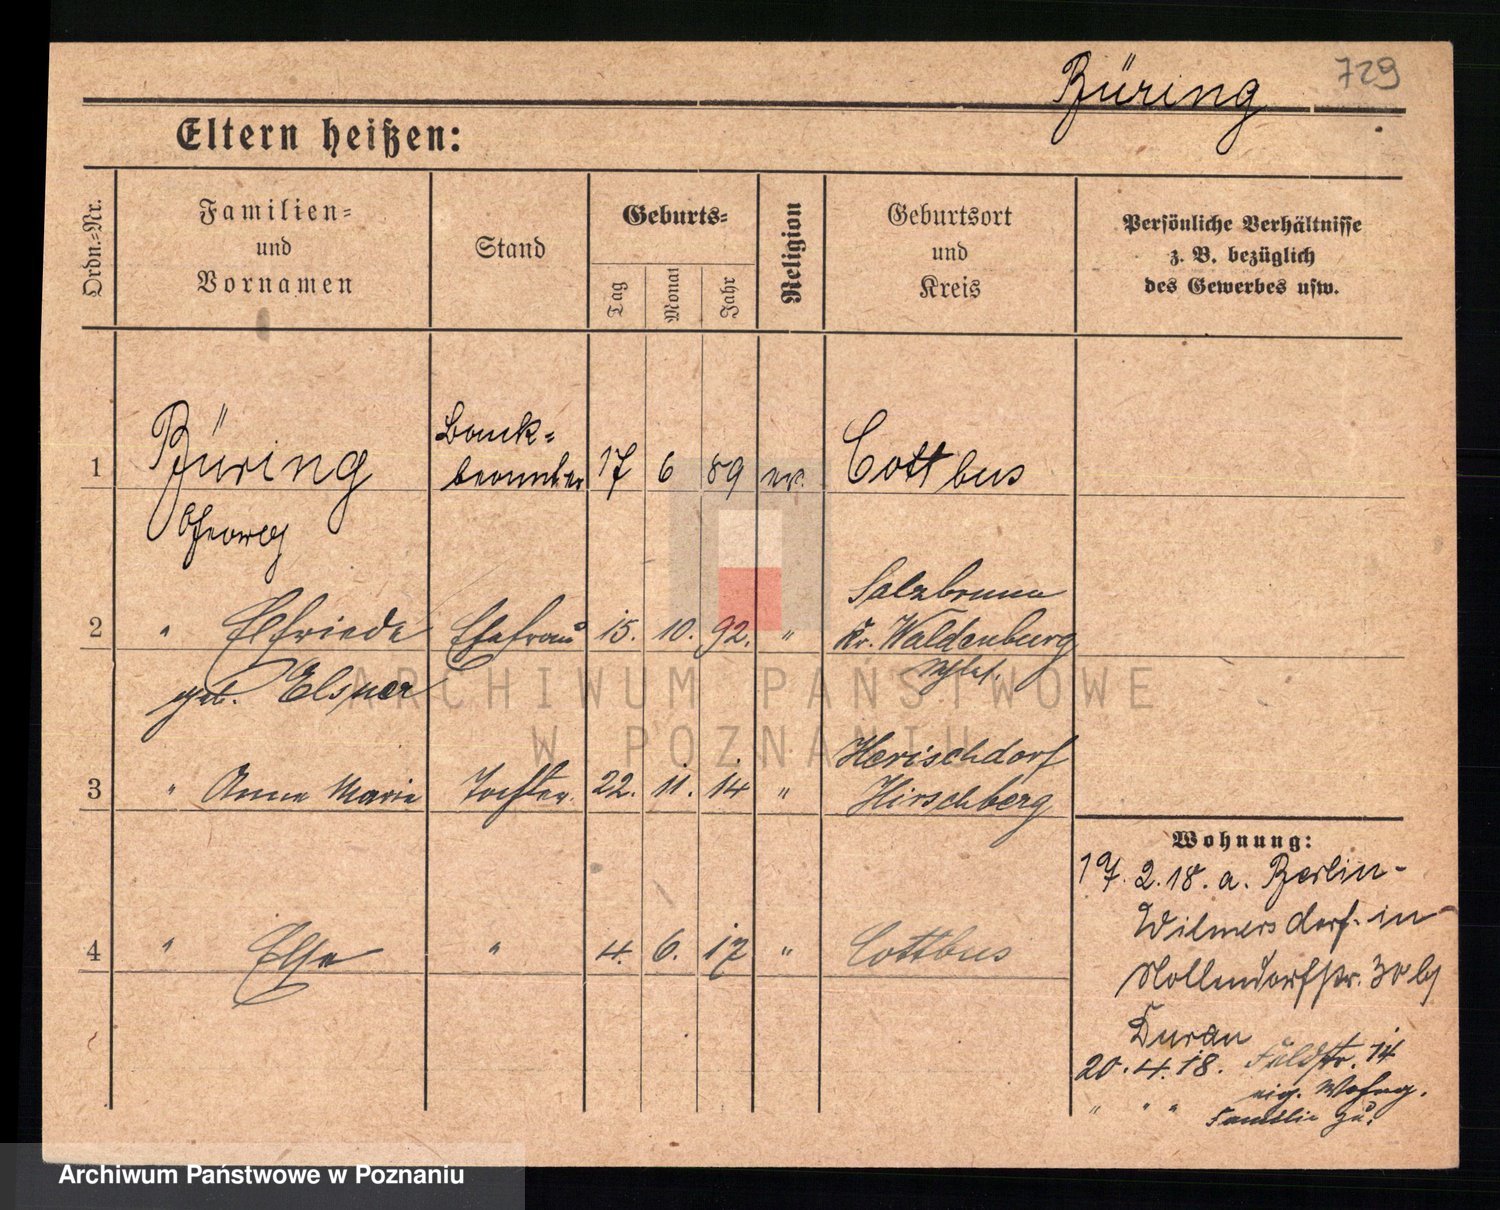 Büring
729
Eltern heißen:
Ordn.-Nr.
Familien-
und
Vornamen
Stand
Geburts-
Tag
Monat
Jahr
Religion
Geburtsort
und
Kreis
Persönliche Verhältnisse
z. B. bezüglich
des Gewerbes usw.
1 Büring Bank- 17 6 89 ev. Cottbus
beamter
Georg
2 " Elfriede Ehefrau 15. 10. 92. " Salzbrunn
Kr. Waldenburg
geb. Elsner
3 " Anne Marie Tochter 22. 11. 14 " Herischdorf
Hirschberg
4 " Else " 4. 6. 17 " Cottbus
Wohnung:
19. 2. 18. a. Berlin-
Wilmersdorf in
Nollendorfstr. 30 bj
Duran
20. 4. 18. Feldstr. 14
eig. Wohng.
" " " Familie zu.
ARCHIWUM PAŃSTWOWE
W POZNANIU
Archiwum Państwowe w Poznaniu